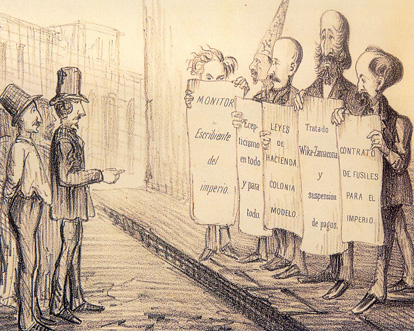 MONITOR
Escribiente
del
imperio.
Excep-
ticismo
en todo
y para
todo.
LEYES
DE
HACIENDA
COLONIA
MODELO.
Tratado
Wike-Zamacona
y
suspension
de pagos.
CONTRATO
DE FUSILES
PARA EL
IMPERIO.